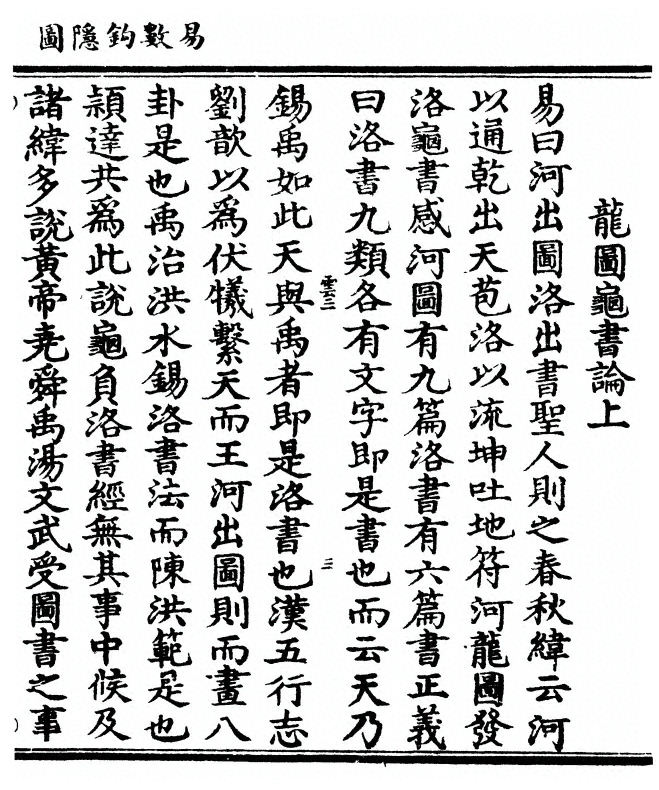 易數鈎隱圖
龍圖龜書論上
易曰河出圖洛出書聖人則之春秋緯云河
以通乾出天苞洛以流坤吐地符河龍圖發
洛龜書感河圖有九篇洛書有六篇書正義
曰洛書九類各有文字即是書也而云天乃
雲六三
三
錫禹如此天與禹者即是洛書也漢五行志
劉歆以爲伏犧繫天而王河出圖則而畫八
卦是也禹治洪水錫洛書法而陳洪範是也
頴達共爲此說龜負洛書經無其事中候及
諸緯多說黃帝堯舜禹湯文武受圖書之事